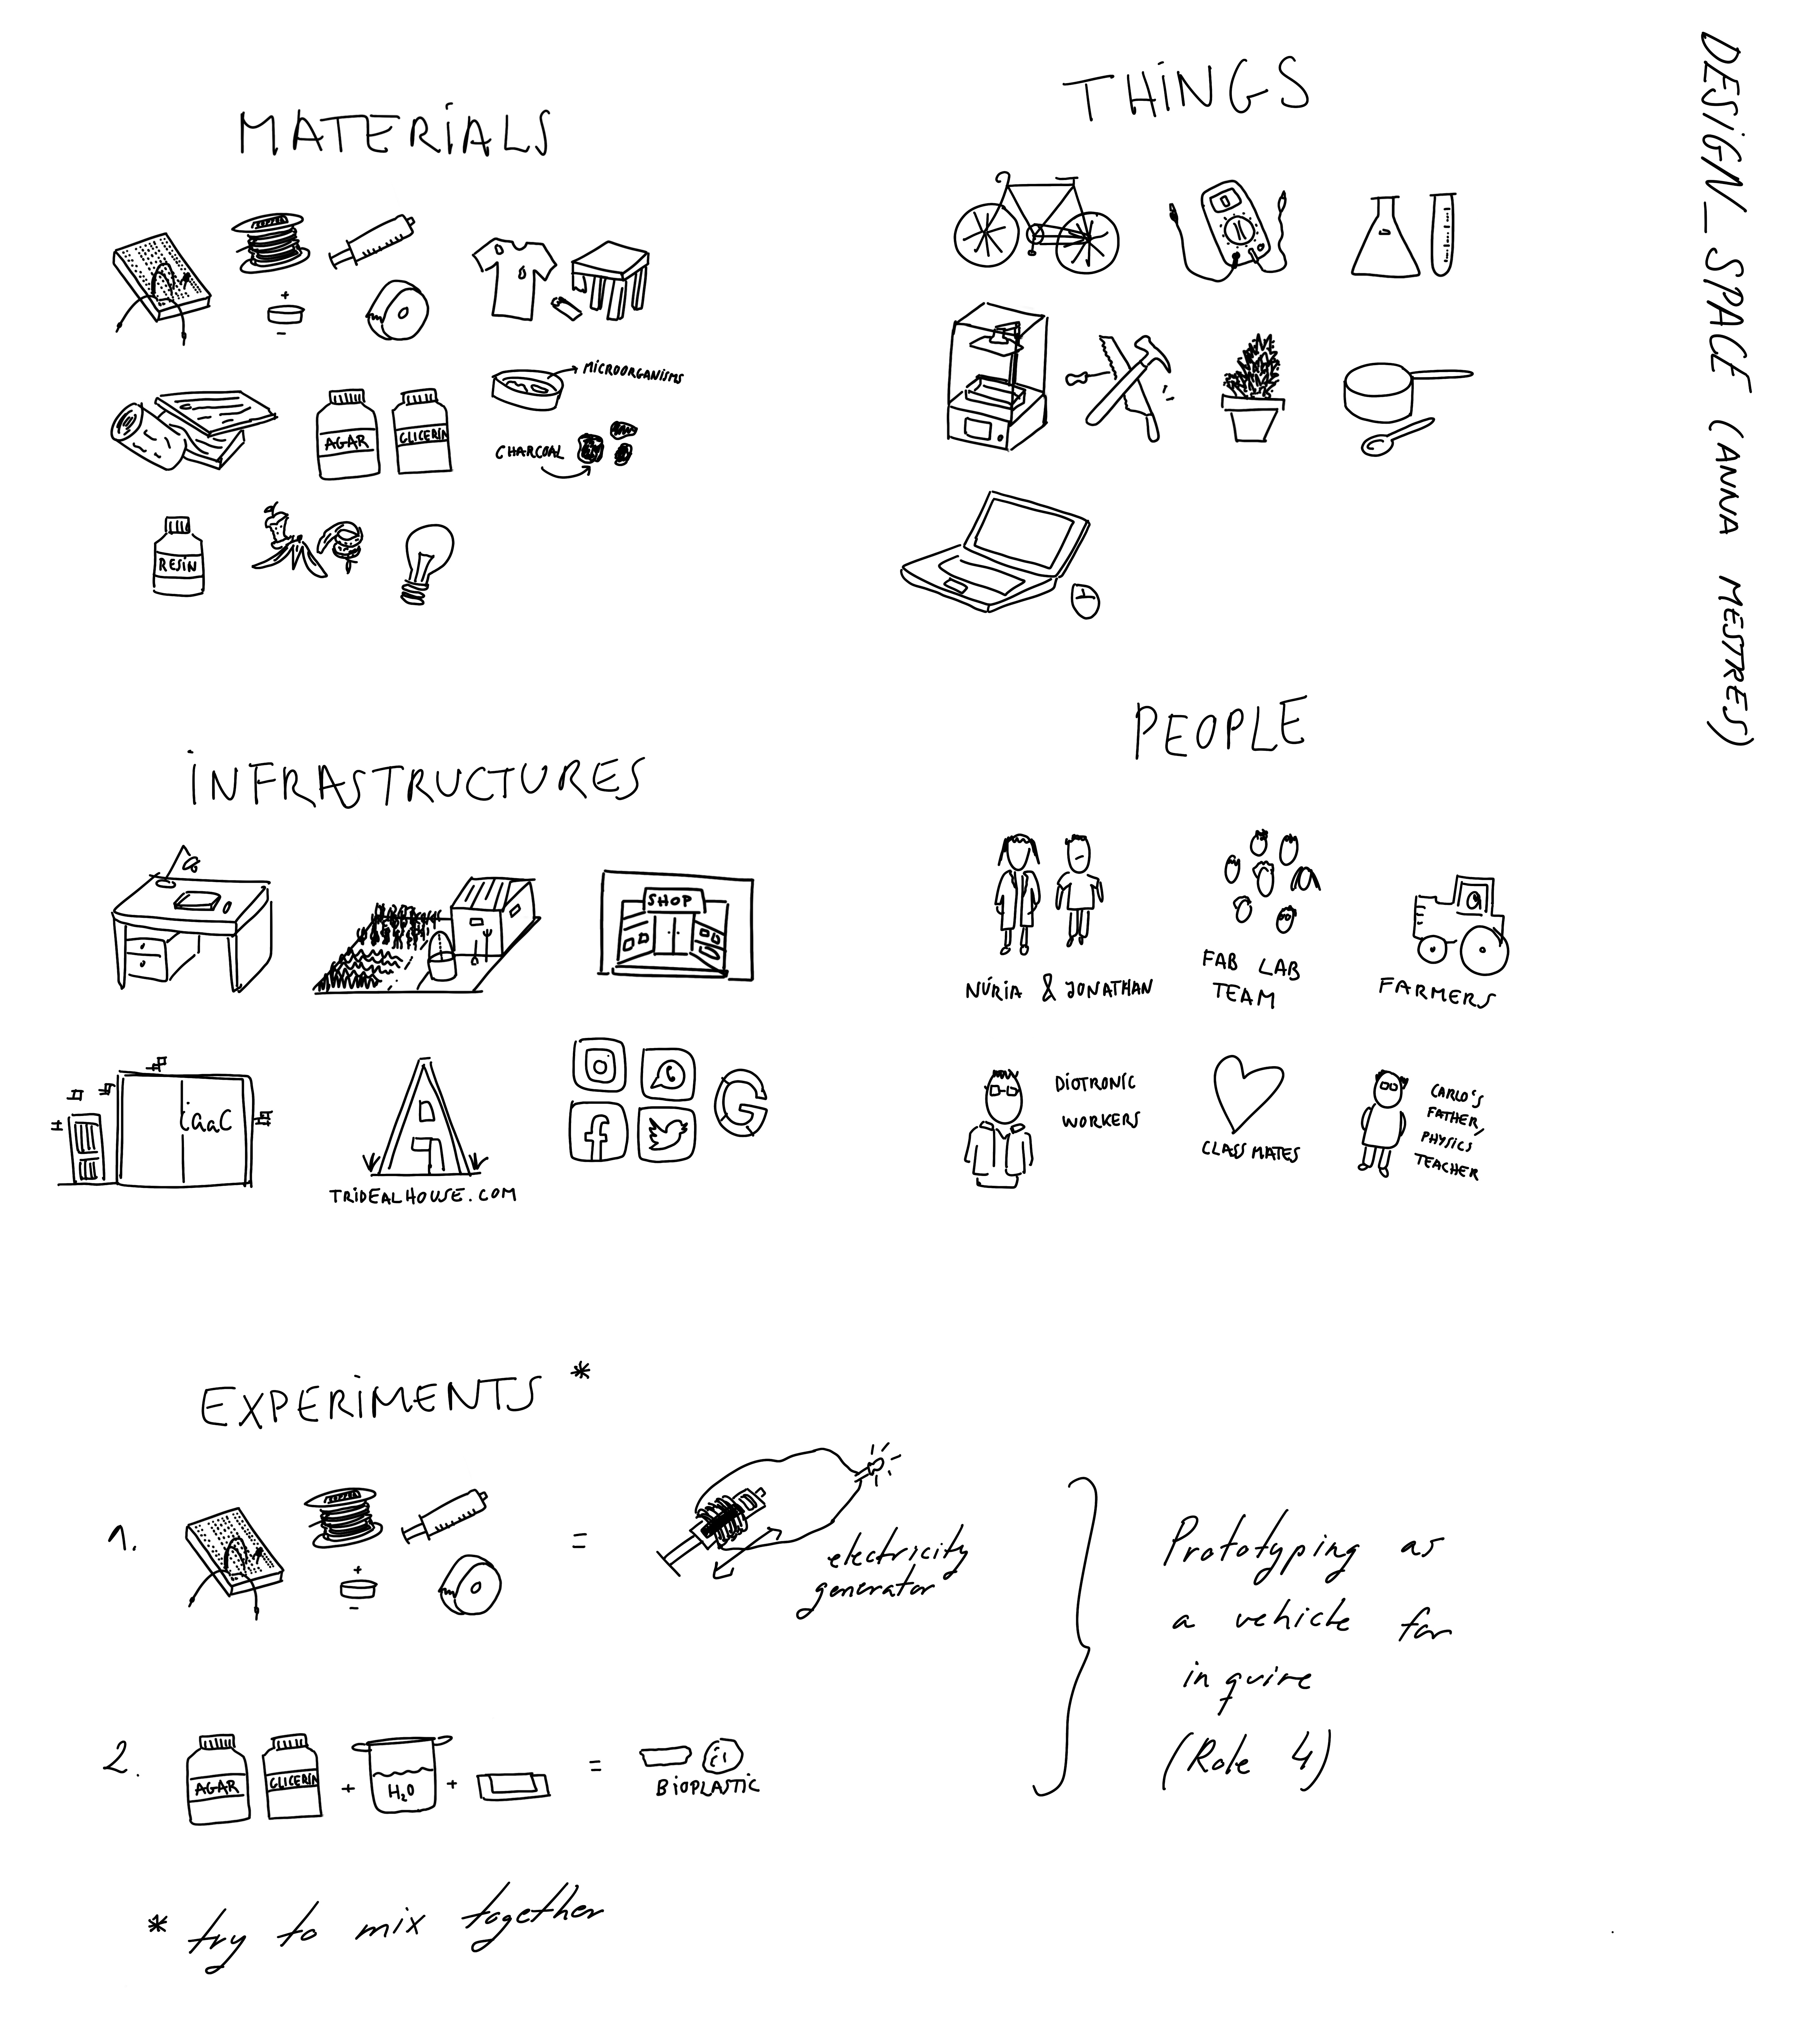 DESIGN_SPACE (ANNA MESTRES)
MATERiALS
+
-
MiCROORGANiSMS
AGAR
GLICERIN
CHARCOAL
RESiN
THiNGS
iNFRASTRUCTURES
SHOP
iaaC
TRiDEALHOUSE.COM
PEOPLE
NÚRiA & JONATHAN
FAB LAB
TEAM
FARMERS
DiOTRONiC
WORKERS
CLASSMATES
CARLO'S
FATHER,
PHYSiCS
TEACHER
EXPERiMENTS *
1.
+
-
=
electricity
generator
2.
AGAR
GLICERIN
+
H2O
+
=
BiOPLASTiC
Prototyping as
a vehicle for
inquire
(Role 4)
* try to mix together